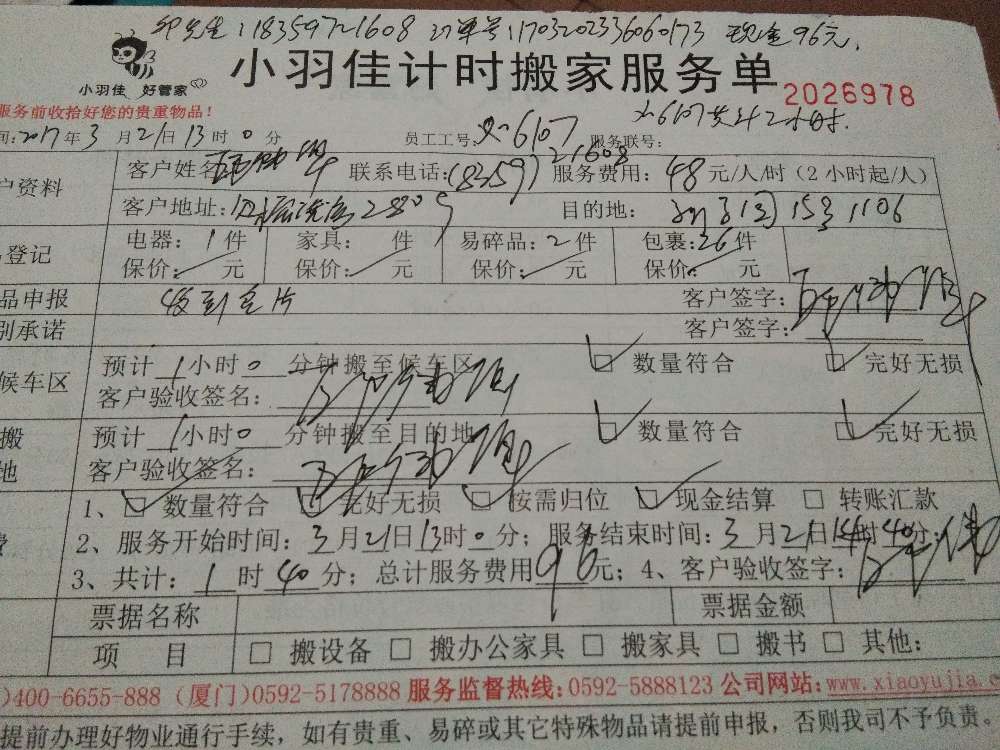 先生:18359721608 订单号:1703202336060173 现金96元.
小羽佳 好管家
小羽佳计时搬家服务单
2026978
服务前收拾好您的贵重物品!
6107共计2小时.
间:2017年3月21日13时0分 员工工号: 6107 服务联号:
户资料
客户姓名 联系电话:18359721608 服务费用:48元/人/时(2小时起/人)
客户地址: 目的地: 1106
品登记
电器:1件 家具: 件 易碎品:2件 包裹:26件
保价: 元 保价: 元 保价: 元 保价: 元
品申报 收到名片 客户签字:
别承诺 客户签字:
候车区
预计1小时0分钟搬至候车区 数量符合 完好无损
客户验收签名:
搬
地
预计1小时0分钟搬至目的地 数量符合 完好无损
客户验收签名:
1、□数量符合 □完好无损 □按需归位 □现金结算 □转账汇款
2、服务开始时间:3月21日13时0分;服务结束时间:3月21日14时40分;
3、共计:1时40分;总计服务费用96元;4、客户验收签字:
票据名称 票据金额
项 目 □ 搬设备 □ 搬办公家具 □ 搬家具 □ 搬书 □ 其他:
)400-6655-888 (厦门)0592-5178888 服务监督热线:0592-5888123 公司网站:www.xiaoyujia.c
提前办理好物业通行手续,如有贵重、易碎或其它特殊物品请提前申报,否则我司不予负责。